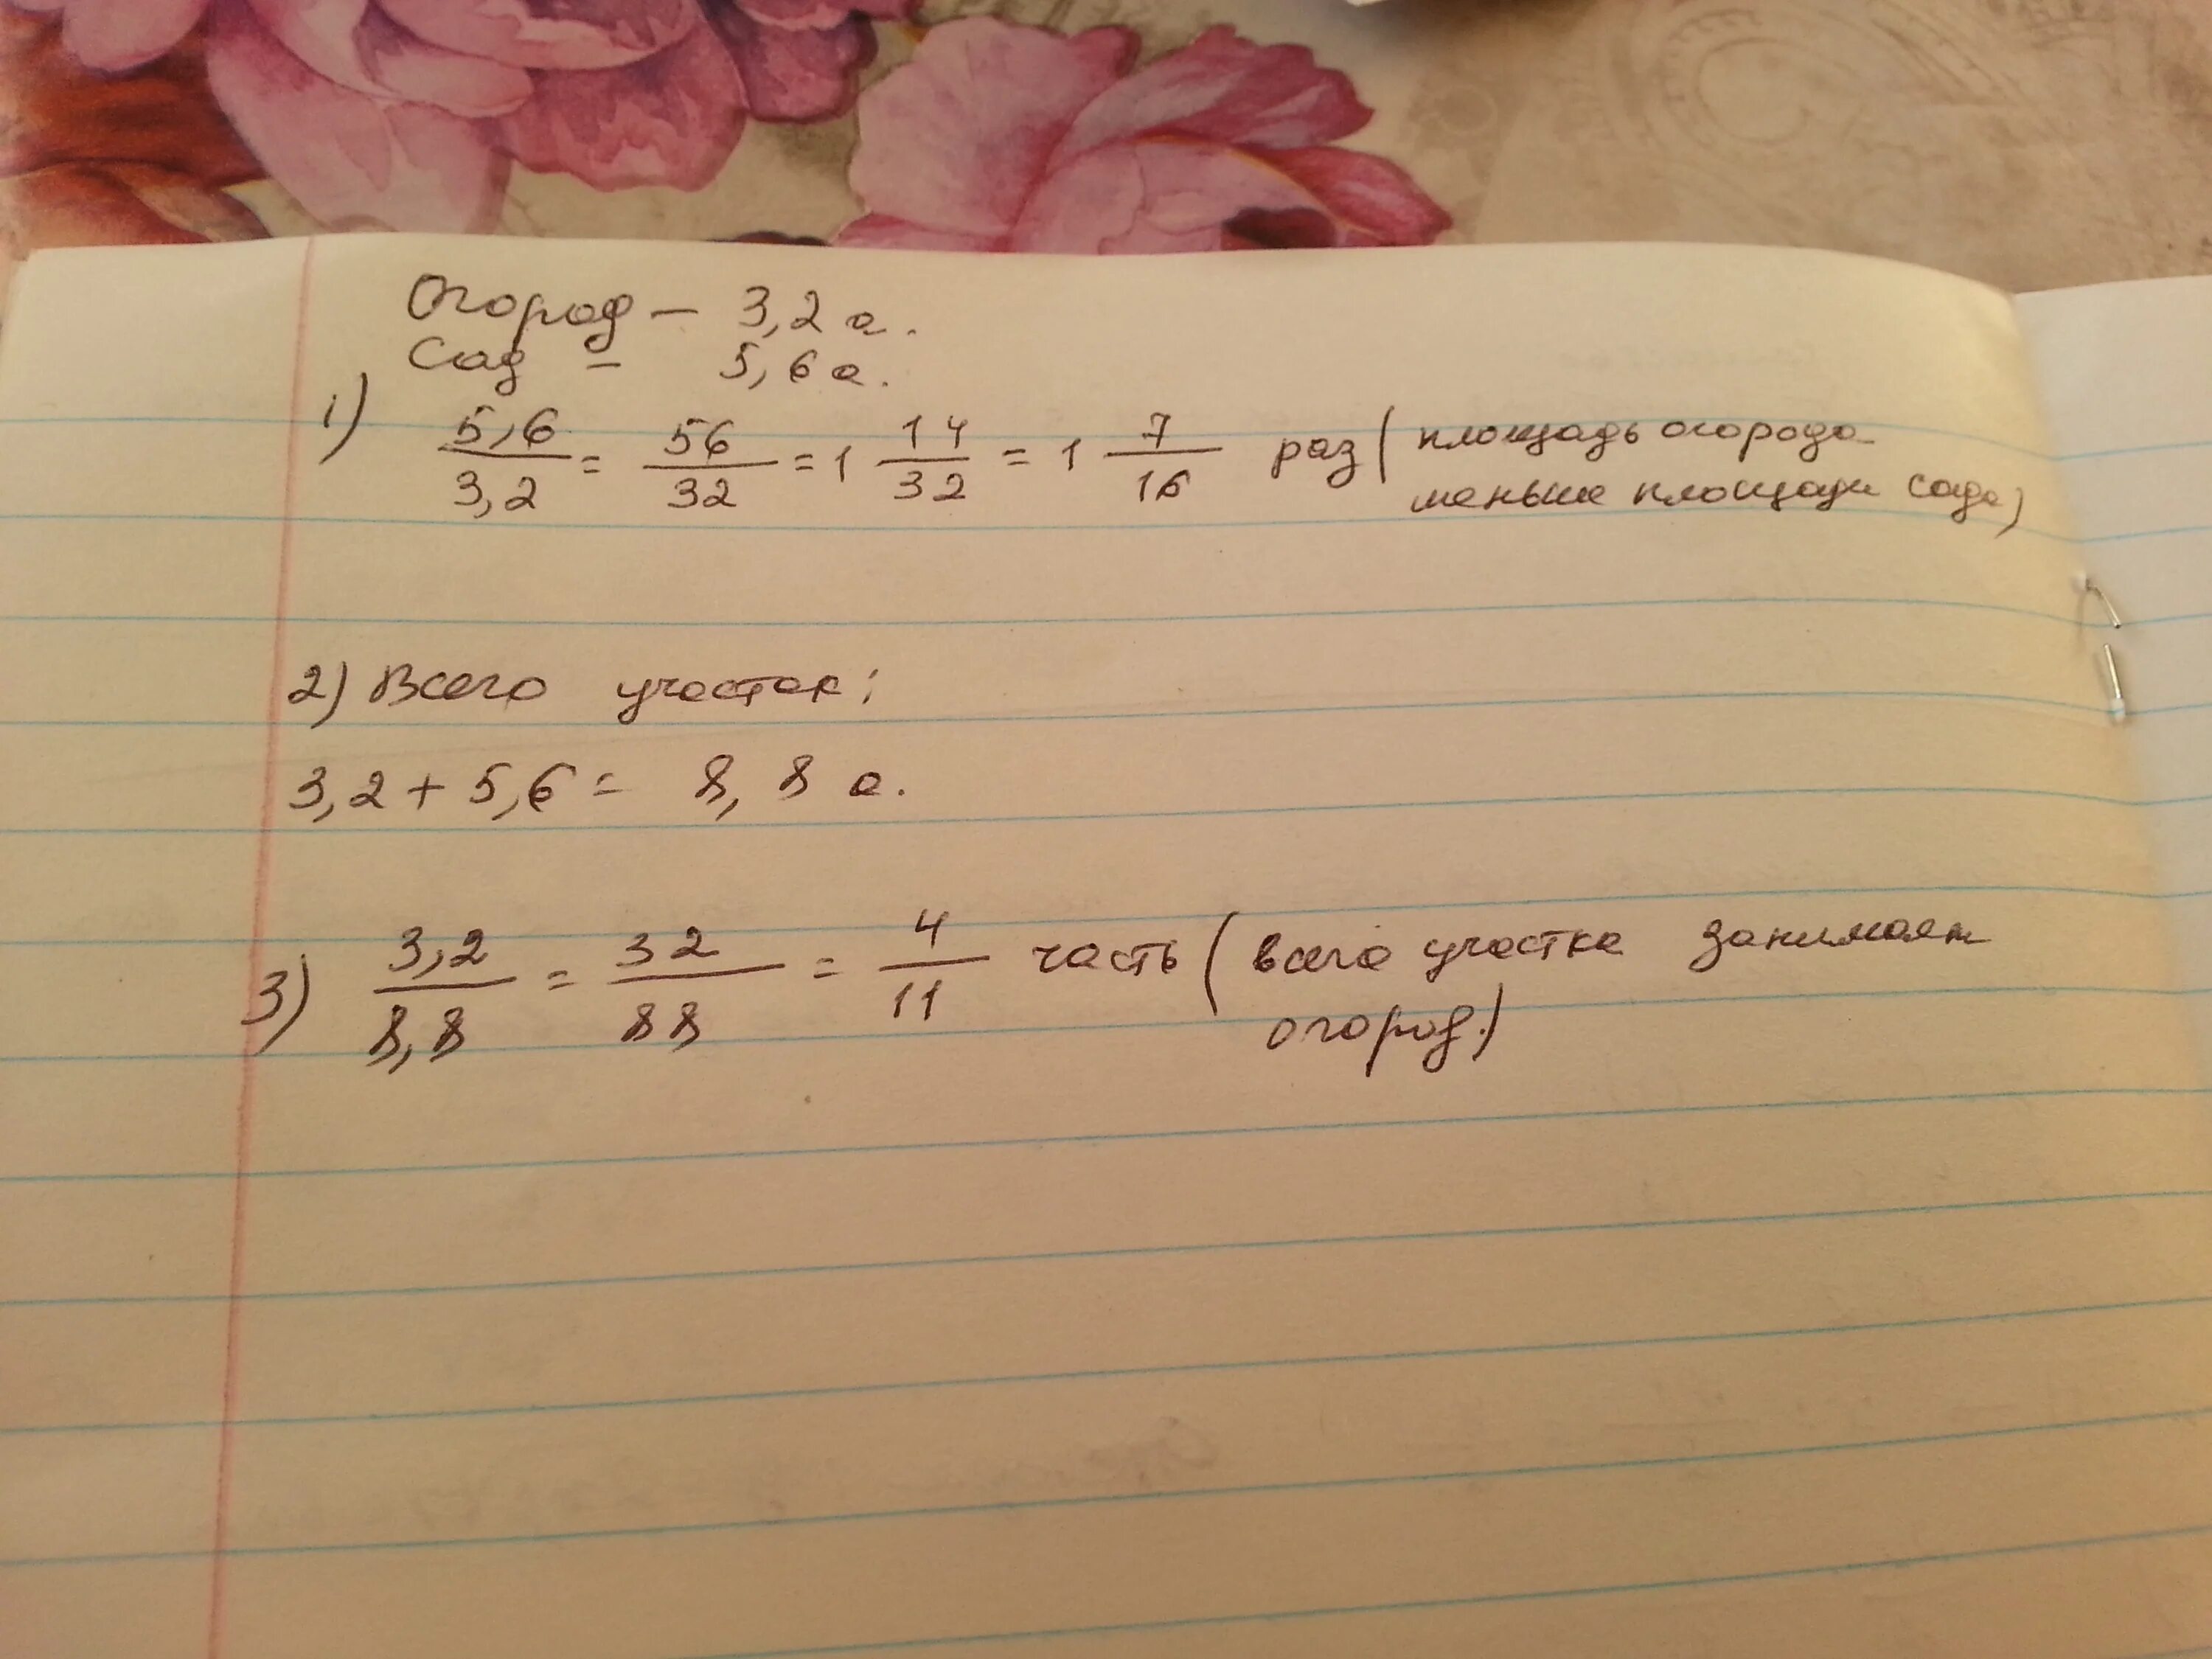 Огород – 3,2 а.
Сад – 5,6 а.
1) 5,6/3,2 = 56/32 = 1 14/32 = 1 7/16 раз (площадь огорода
меньше площади сада)
2) Всего участок:
3,2 + 5,6 = 8,8 а.
3) 3,2/8,8 = 32/88 = 4/11 часть (всего участка занимает
огород.)